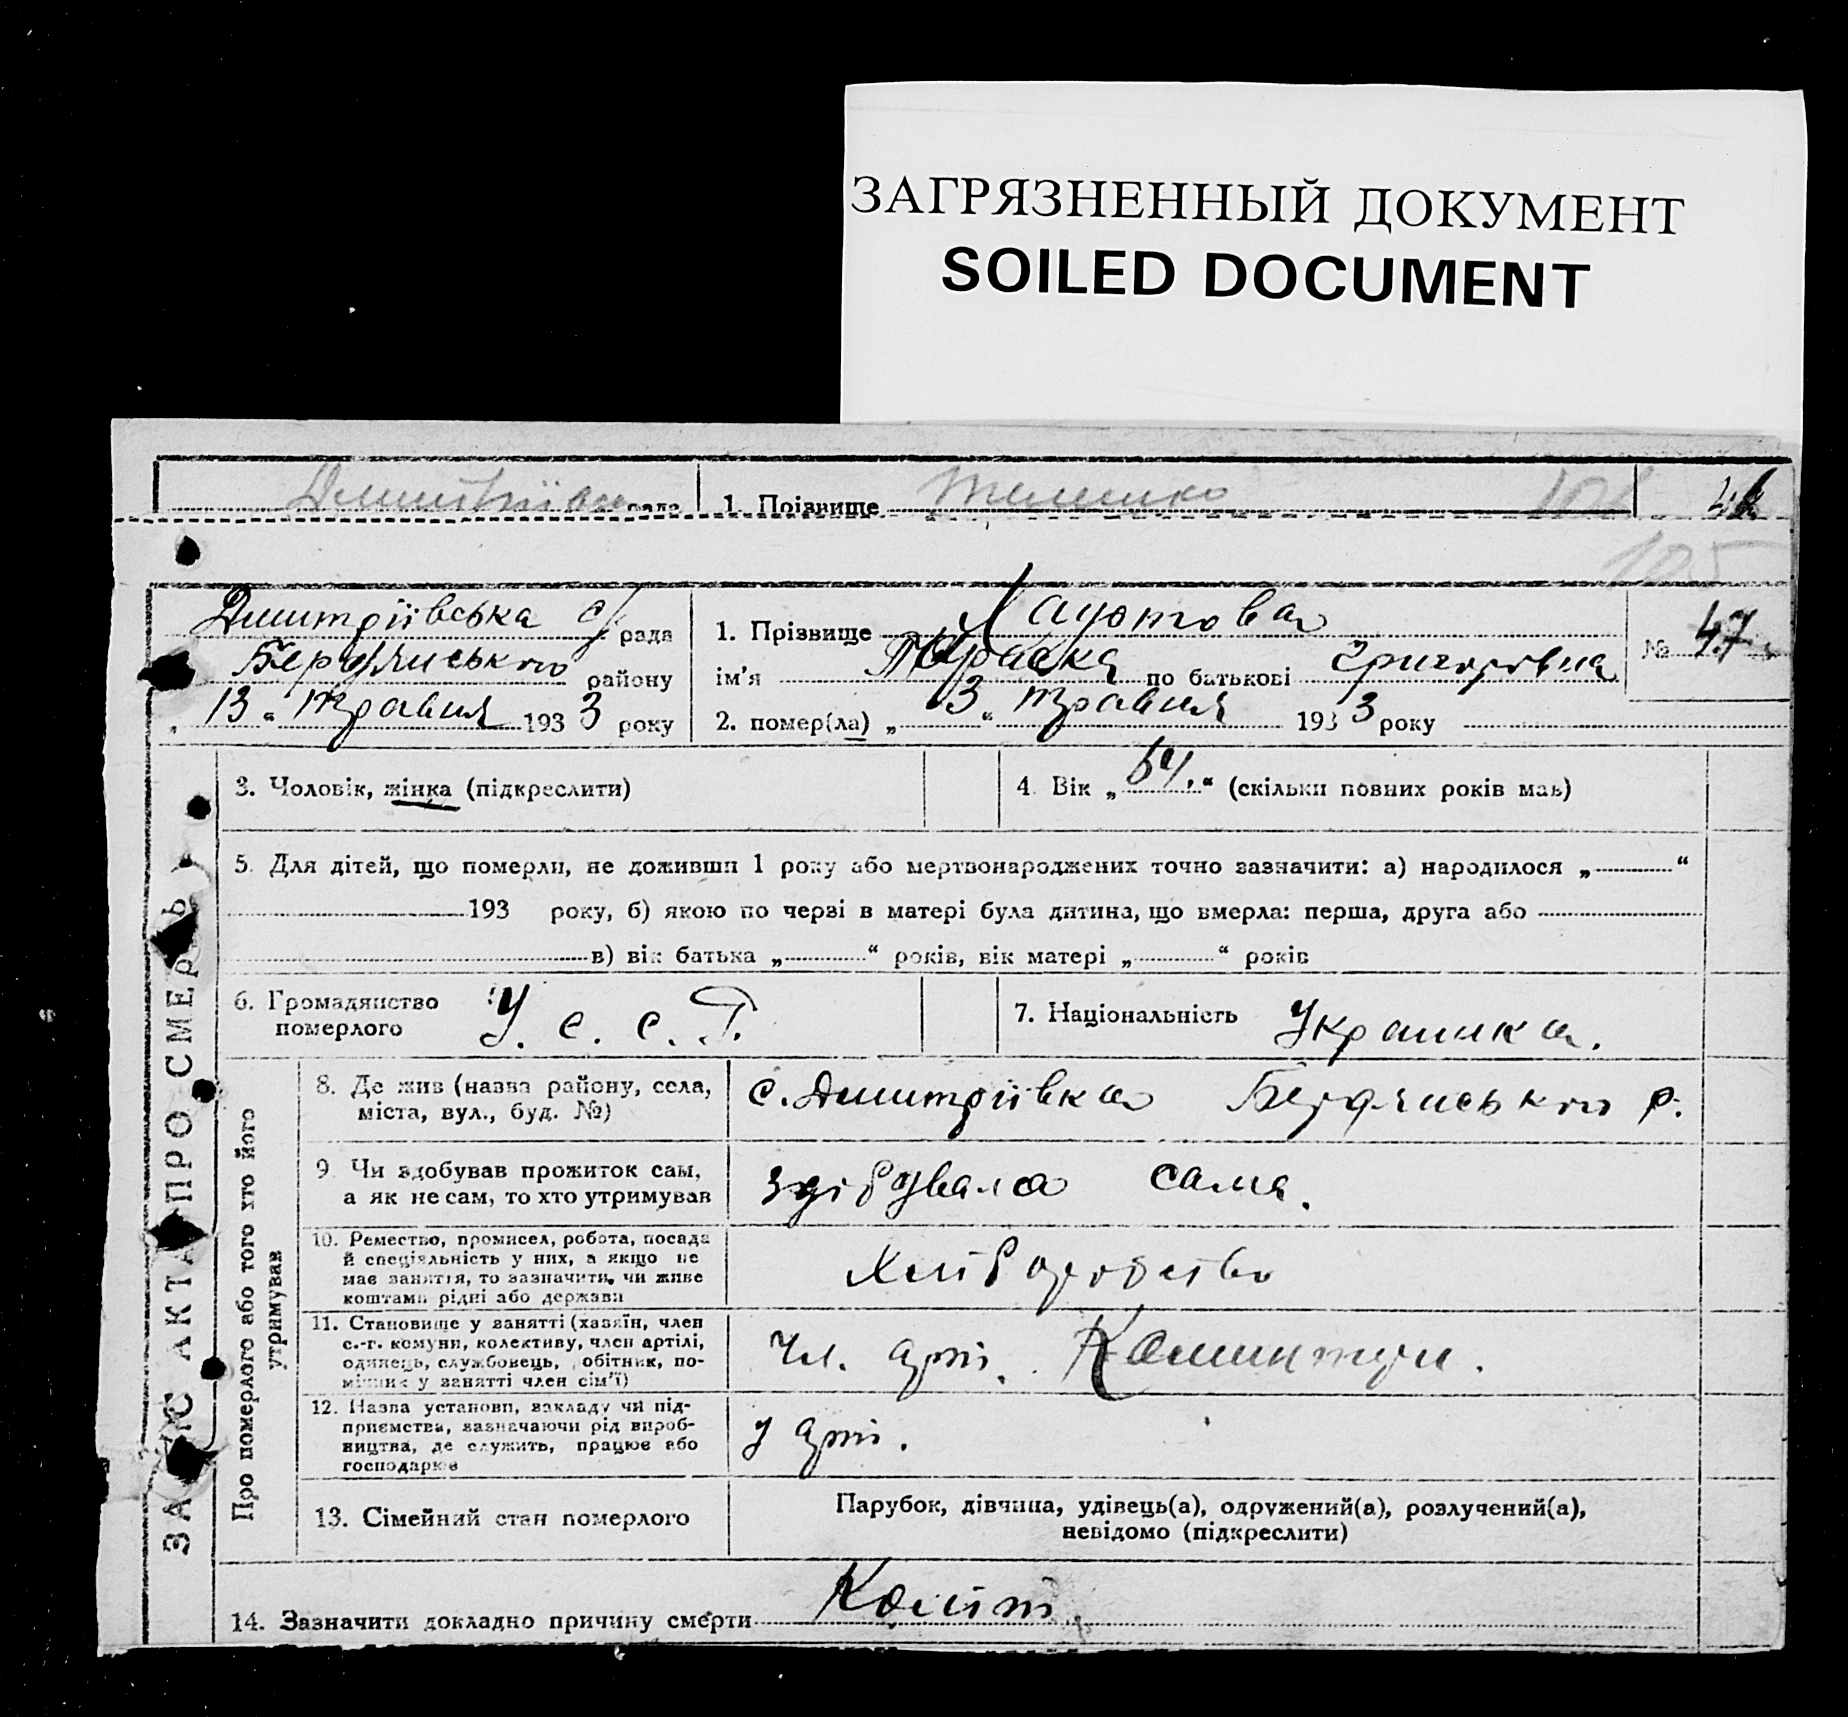 ЗАГРЯЗНЕННЫЙ ДОКУМЕНТ
SOILED DOCUMENT
рада 1. Прізвище
105
Дмитріївська с/рада 1. Прізвище № 47
Бердянського району ім'я Параска по батькові Григорівна
„13“ травня 1933 року 2. помер(ла) „3“ травня 1933 року
3. Чоловік, жінка (підкреслити) 4. Вік „64.“ (скільки повних років мав)
5. Для дітей, що померли, не доживши 1 року або мертвонароджених точно зазначити: а) народилося „ “
193 року, б) якою по черзі в матері була дитина, що вмерла: перша, друга або
в) вік батька „ “ років, вік матері „ “ років
6. Громадянство померлого У. С. С. Р. 7. Національність Украинка.
ЗАПИС АКТА ПРО СМЕРТЬ
Про померлого або того хто його утримував
8. Де жив (назва району, села, міста, вул., буд. №) с. Дмитріївка Бердянського р.
9. Чи здобував прожиток сам, а як не сам, то хто утримував здібувала сама.
10. Ремество, промисел, робота, посада й спеціяльність у них, а якщо не має заняття, то зазначити, чи живе коштами рідні або держави Хліборобство
11. Становище у занятті (хазяїн, член с.-г. комуни, колективу, член артілі, одинець, службовець, робітник, помічник у занятті член сім'ї) Чл. арт. Комінтерн.
12. Назва установи, закладу чи підприємства, зазначаючи рід виробництва, де служить, працює або господарює у арт.
13. Сімейний стан померлого Парубок, дівчина, удівець(а), одружений(а), розлучений(а), невідомо (підкреслити)
14. Зазначити докладно причину смерти